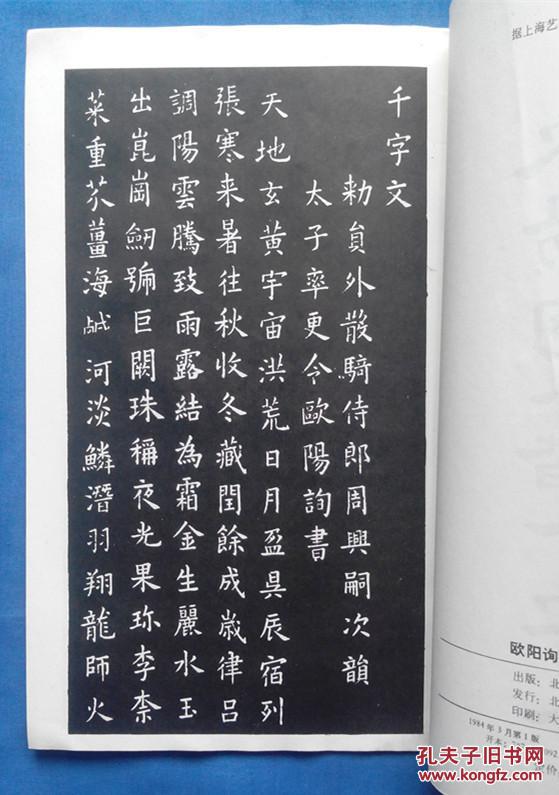 千字文
勑貟外散騎侍郎周興嗣次韻
太子率更令歐陽詢書
天地玄黃宇宙洪荒日月盈昃辰宿列
張寒来暑往秋收冬藏閏餘成歲律呂
調陽雲騰致雨露結為霜金生麗水玉
出崑崗劒號巨闕珠稱夜光果珎李柰
菜重芥薑海鹹河淡鱗潛羽翔龍師火
据上海艺
欧阳询
出版：北
发行：北
印刷：大
1984年3月第1版
开本：
定价
孔夫子旧书网
www.kongfz.com